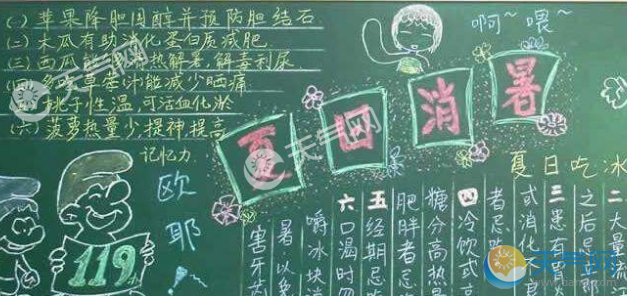 (一) 苹果降胆固醇并预防胆结石
(二) 木瓜有助消化蛋白质减肥
(三) 西瓜能 热解素,解毒利尿
草莓汁能减少晒痛
桃子性温,可活血化淤
(六) 菠萝热量少,提神提高
记忆力
啊~喂~
夏日消暑
欧耶
119
夏日吃冰
二 大量流汗
之后忌
三 患有
或消化
者忌吃
四 冷饮或
糖分高热量
肥胖者忌
五 经期忌吃
六 口渴时
嚼冰块
暑 以免
害牙齿
天气网
天气网
天气网